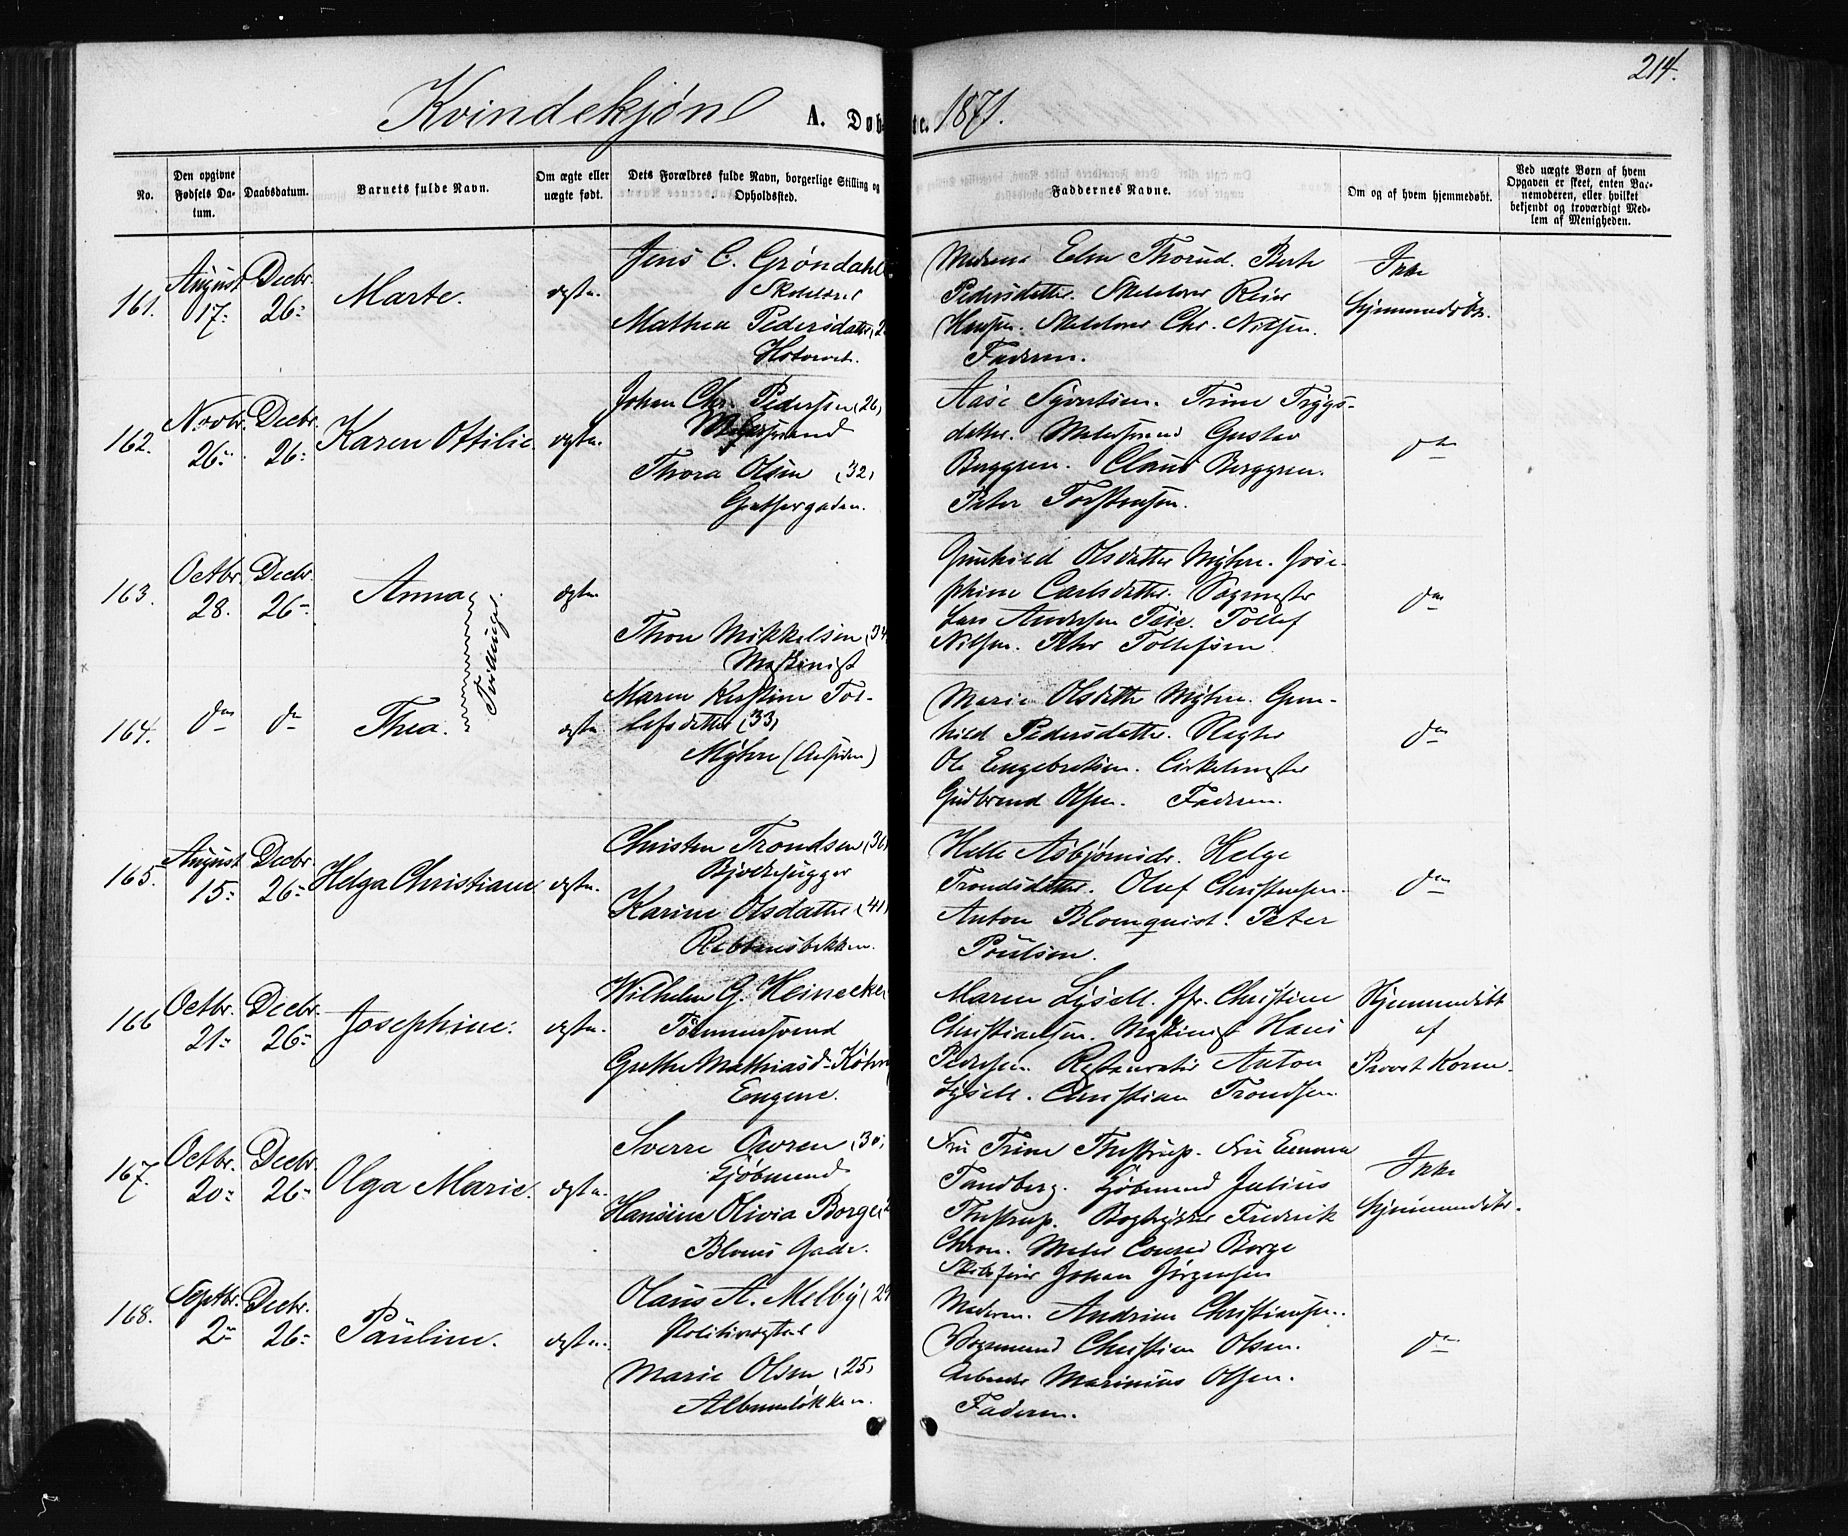 214.
Kvindekjøn A. Døb te. 1871.
No.
Den opgivne Fødsels Datum.
Daabsdatum.
Barnets fulde Navn.
Om ægte eller uægte født.
Dets Forældres fulde Navn, borgerlige Stilling og Opholdssted.
Faddernes Navne.
Om og af hvem hjemmedøbt.
Ved uægte Børn af hvem Opgaven er skeet, enten Barnemoderen, eller hvilket bekjendt og troværdigt Medlem af Menigheden.
161. August 17: Decbr. 26: Marte. ægte.
Jens C. Grøndahl
Mathea Pedersdatter
Moderen Thorud. Berte
Pedersdatter. Reier
Hansen. Chr. Nilsen.
Faderen.
Ikke
hjemmedøbt.
162. Novbr. 26: Decbr. 26: Karen Ottilie ægte.
Johan Chr. Pedersen (26)
Malersvend
Thora Olsen (32)
Aase Syvertsen. Trine Trygs-
datter. Malersvend Gustav
Berggren. Claus Berggren.
Peter Torstensen.
do
163. Octbr. 28. Decbr. 26- Anna ægte
Tvillinger.
Thon Mikkelsen (34
Maskinist
Gunhild Olsdatter Myhre. Jose-
phine Carlsdatter. Sagmester
Lars Andersen Teie. Tollef
Nilsen. Peter Tollefsen
do
164. do do Thea. ægte
Maren Kirstine Tol-
lefsdatter (33)
Myhre
Marie Olsdatter Myhre. Gun-
hild Pedersdatter. Slagter
Ole Engebretsen. Cirkelmester
Gudbrand Olsen. Faderen.
do
165. August 15: Decbr. 26: Helga Christiane. ægte.
Christen Trondsen (36)
Karine Olsdatter (41)
Rebbansbakken.
Helle Asbjørnsdr. Helge
Trondsdatter. Oluf Christensen.
Anton Blomquist. Peter
Poulsen.
do
166 Octbr. 21: Decbr. 26: Josephine. ægte.
Wilhelm G. Heinecke
Tømmersvend
Grethe Mathiasd.
Engene.
Maren Lysell. Jfr. Christine
Christiansen. Maskinist Hans
Pedersen. Restauratør Anton
Lysell. Christian Trondsen.
Hjemmedøbt
af
Provst
167. Octbr. 20: Decbr. 26: Olga Marie. ægte.
Sverre Owren (30)
Kjøbmand
Hansine Olivia Borge
Bloms Gade.
Fru Trine Thustrup. Fru Emma
Tandberg. Kjøbmand Julius
Thustrup. Bogtrykker Fredrik
Maler Conrad Borge
Skibsfører Johan Jørgensen
Ikke
hjemmedøbt.
168. Septbr. 2: Decbr. 26: Pauline. ægte.
Olaus A. Melby (29
Politivægter
Marie Olsen (25)
Albumløkken.
Moderen. Andrine Christiansen.
Vognmand Christian Olsen.
Arbeider Marinius Olsen.
Faderen.
do